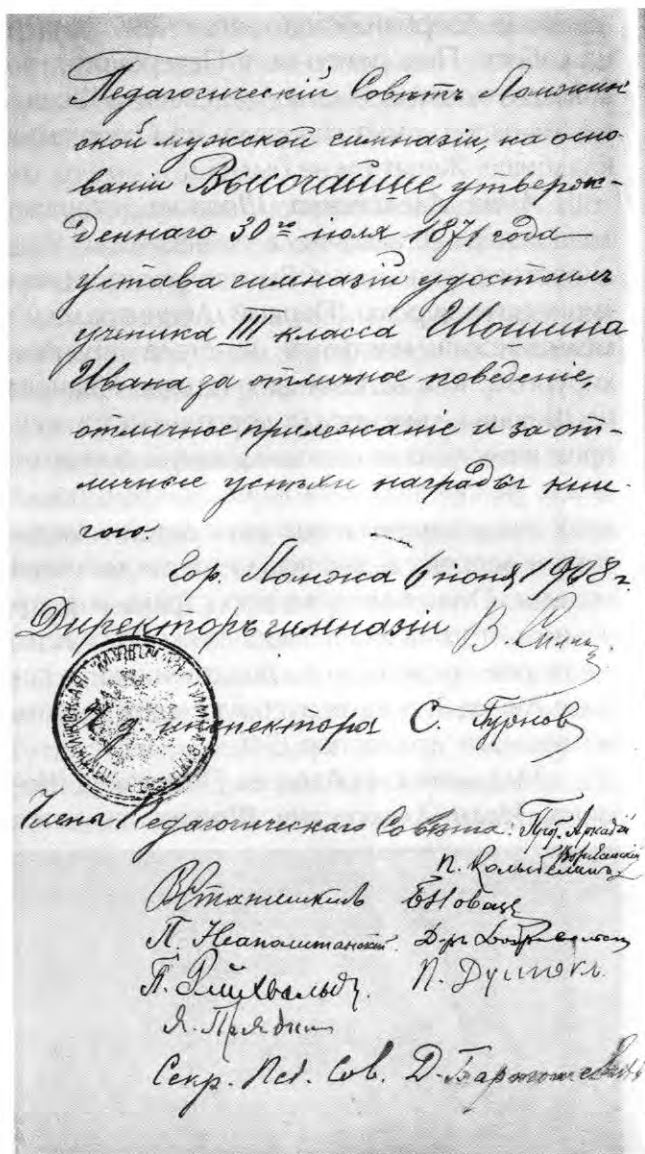 Педагогическій Совѣтъ Ломжин
ской мужской гимназіи, на осно-
ваніи Высочайше утверж-
деннаго 30го іюля 1871 года
устава гимназій удостоилъ
ученика III класса Шошина
Ивана за отличное поведеніе,
отличное прилежаніе и за от-
личные успѣхи награды кни-
гою.
Гор. Ломжа 6 июня 1908 г.
Директоръ гимназіи В.
И. д. инспектора С. Гурнов
Члены Педагогическаго Совѣта: Прот. Аркадій
П.
П. Неаполитанскій. Д-ръ
П. Рейхвальдъ. П.
Я.
Секр. Пед. Сов. Д.